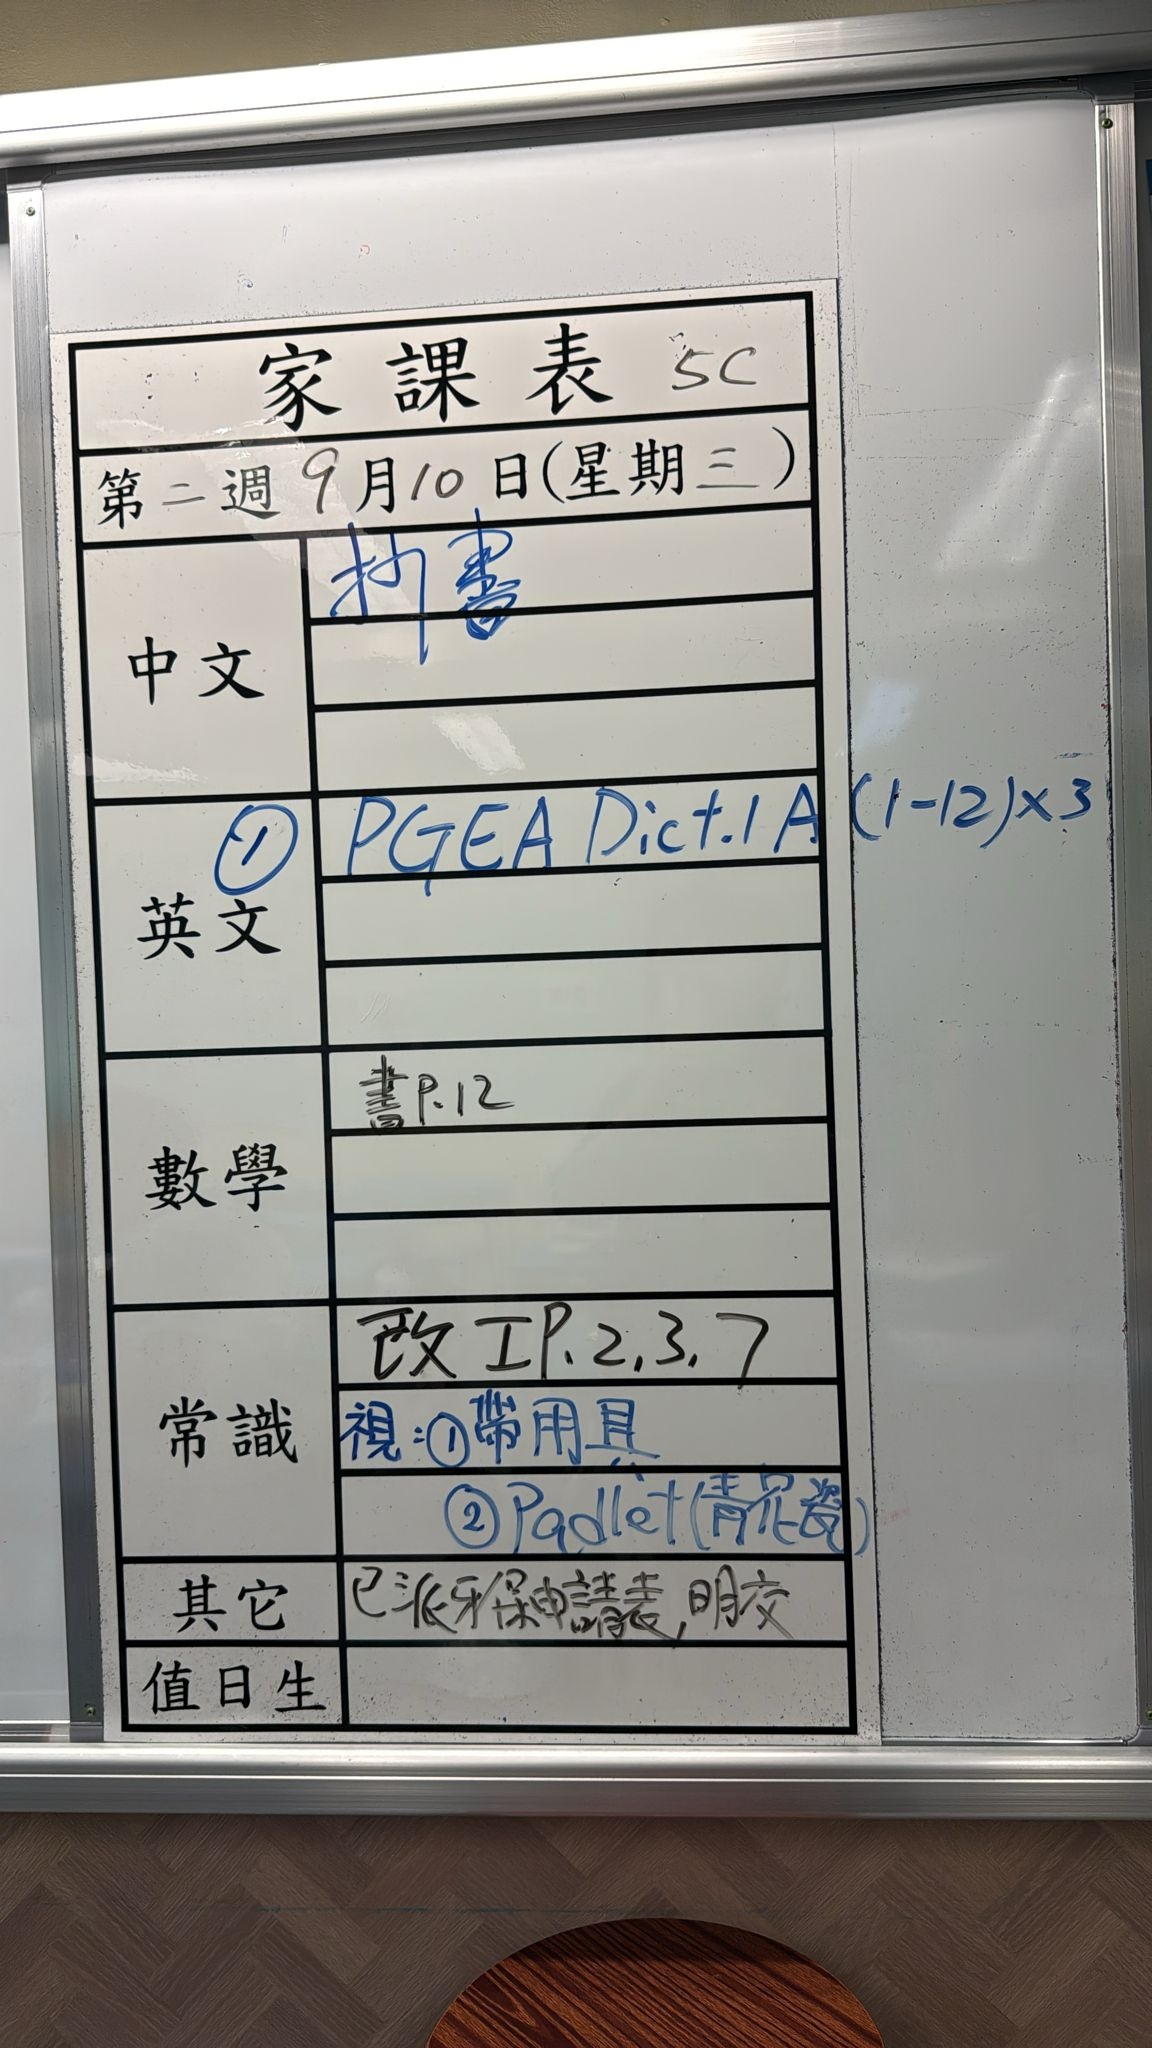 家課表 5C
第二週9月10日(星期三)
中文
抄書
英文
① PGEA Dict.1A (1-12)×3
數學
書P.12
常識
改工P.2,3,7
視:①帶用具
②Padlet(青花瓷)
其它
已派牙保申請表,明交
值日生